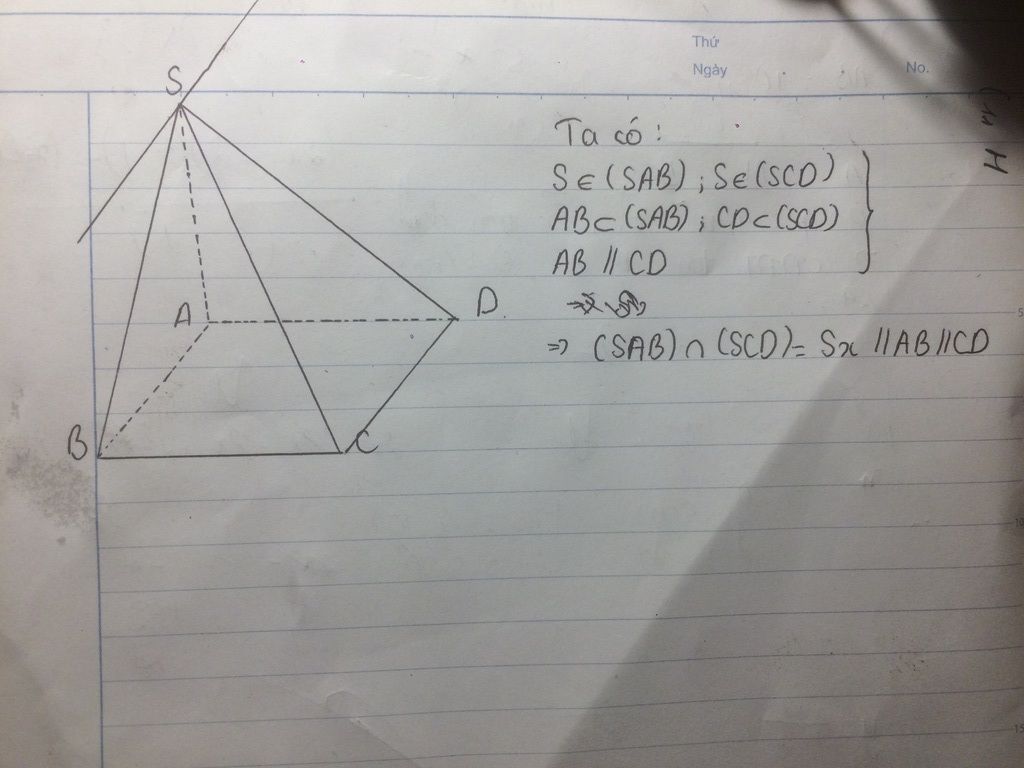 Thứ
Ngày
No.
S
A
D
B
C
Ta có :
S ∈ (SAB) ; S ∈ (SCD)
AB ⊂ (SAB) ; CD ⊂ (SCD)
AB // CD
⇒ (SAB) ∩ (SCD) = Sx // AB // CD
H
5
10
15